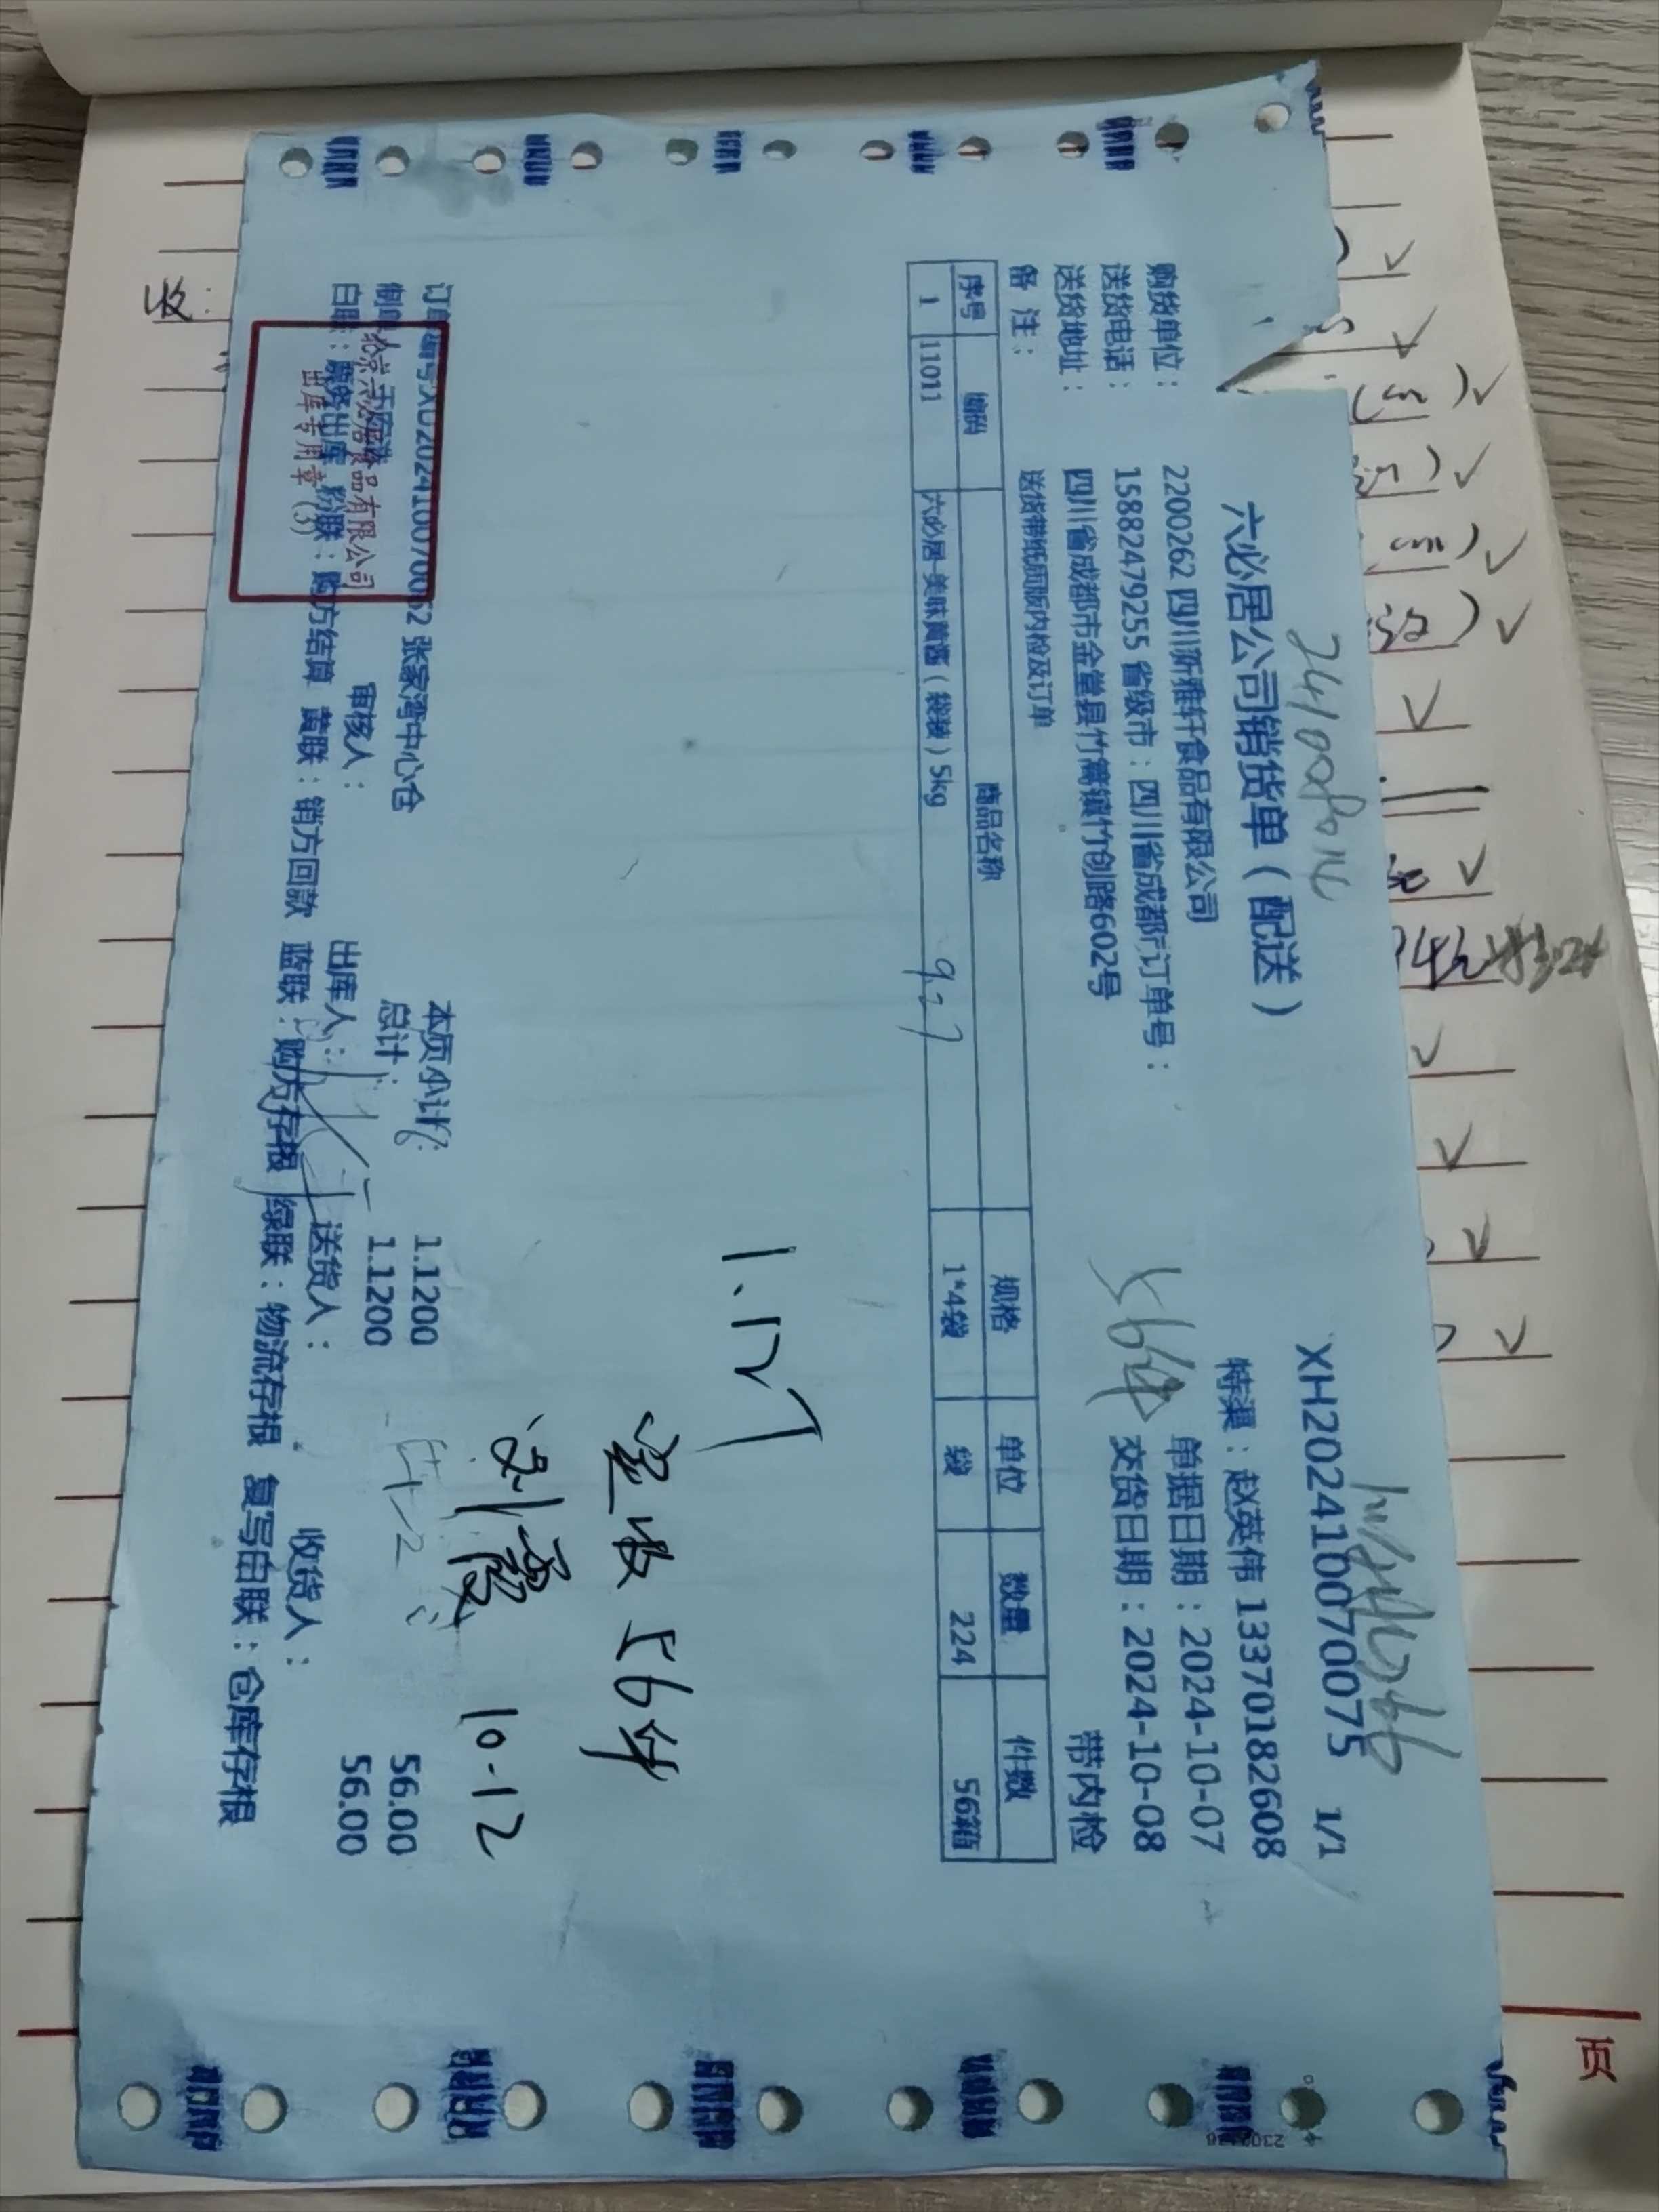 2410080114
XH20241007 0075 1/1
六必居公司销货单(配送)
特渠:赵英伟 13370182608
购货单位: 2200262 四川新雅轩食品有限公司
单据日期:2024-10-07
送货电话: 15882479255 省级市:四川省成都市订单号:
56件
交货日期:2024-10-08
送货地址: 四川省成都市金堂县竹篙镇竹创路602号
带内检
备 注: 送货带纸质版内检及订单
序号 编码 商品名称 规格 单位 数量 件数
1 11011 六必居-美味黄酱(袋装)5kg 1*4袋 袋 224 56箱
9.27
1.12T
实收56件
刘霞 10.12
订单编号:XD202410070062 张家湾中心仓
本页小计: 1.1200 56.00
制单人: 审核人: 总计: 1.1200 56.00
出库人: 送货人: 收货人:
白联:票务出库 粉联:购方结算 黄联:销方回款 蓝联:购方存根 绿联:物流存根 复写白联:仓库存根
北京六必居食品有限公司
出库专用章(3)
收:
页